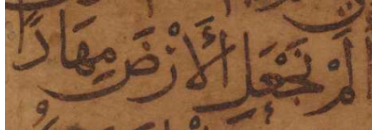 أَلَمْ نَجْعَلِ الْأَرْضَ مِهَادًا